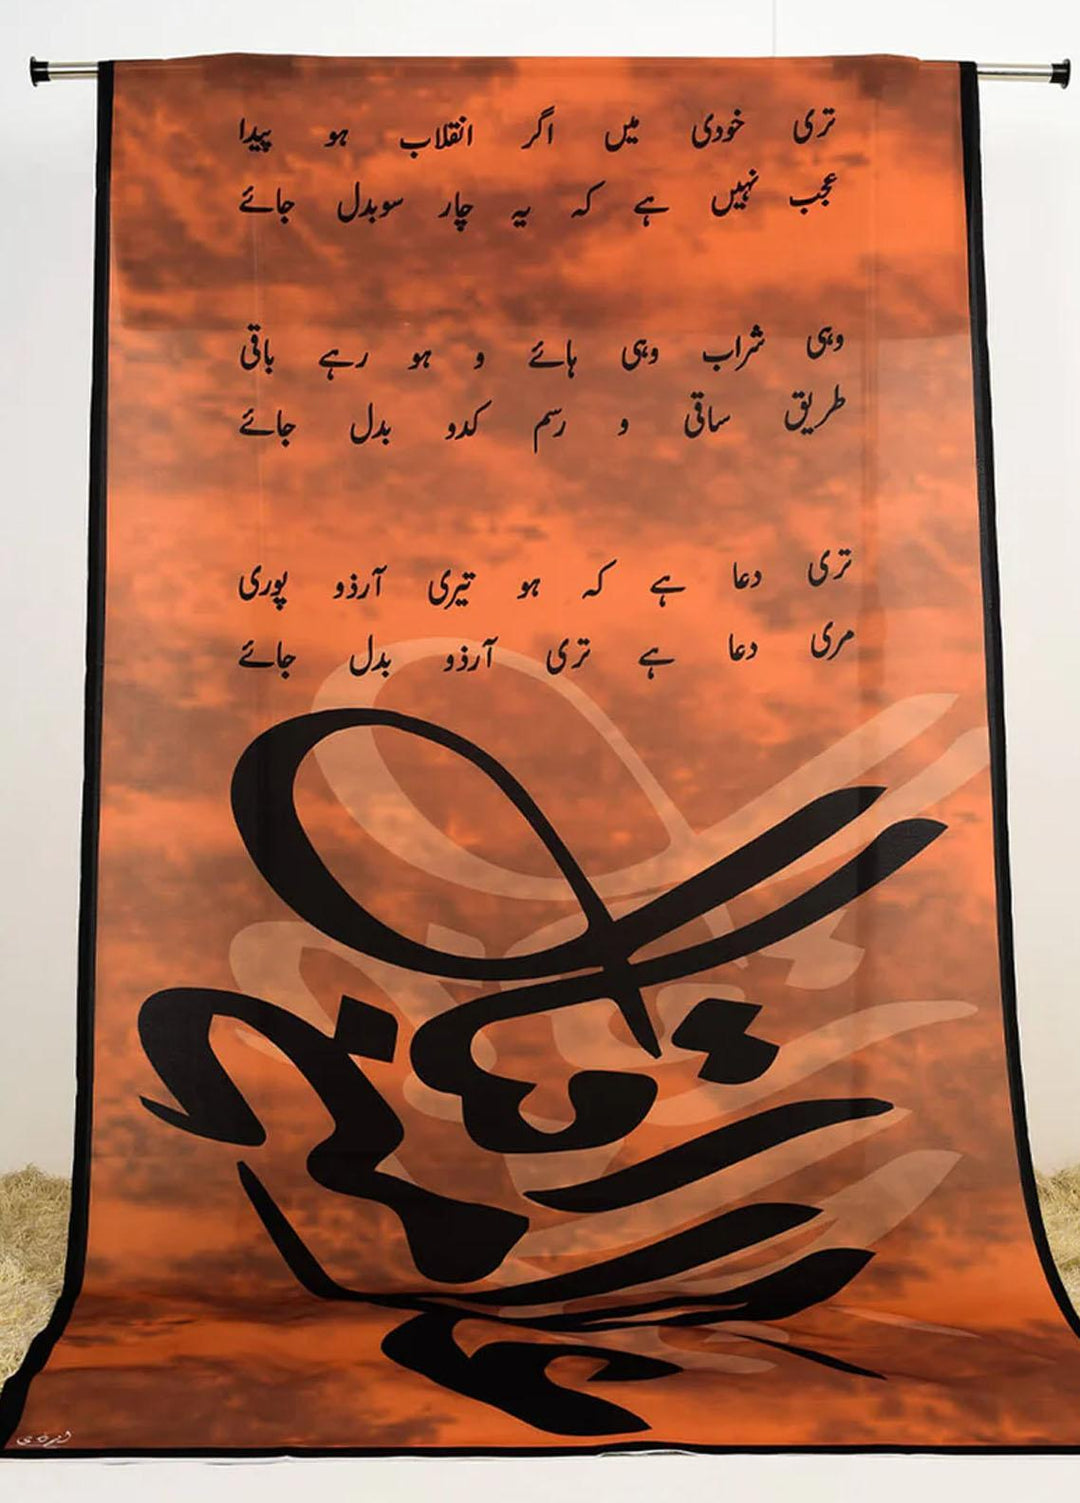 تری خودی میں اگر انقلاب ہو پیدا
عجب نہیں ہے کہ یہ چار سو بدل جائے
وہی شراب وہی ہائے و ہو رہے باقی
طریق ساقی و رسم کدو بدل جائے
تری دعا ہے کہ ہو تیری آرذو پوری
مری دعا ہے تری آرذو بدل جائے